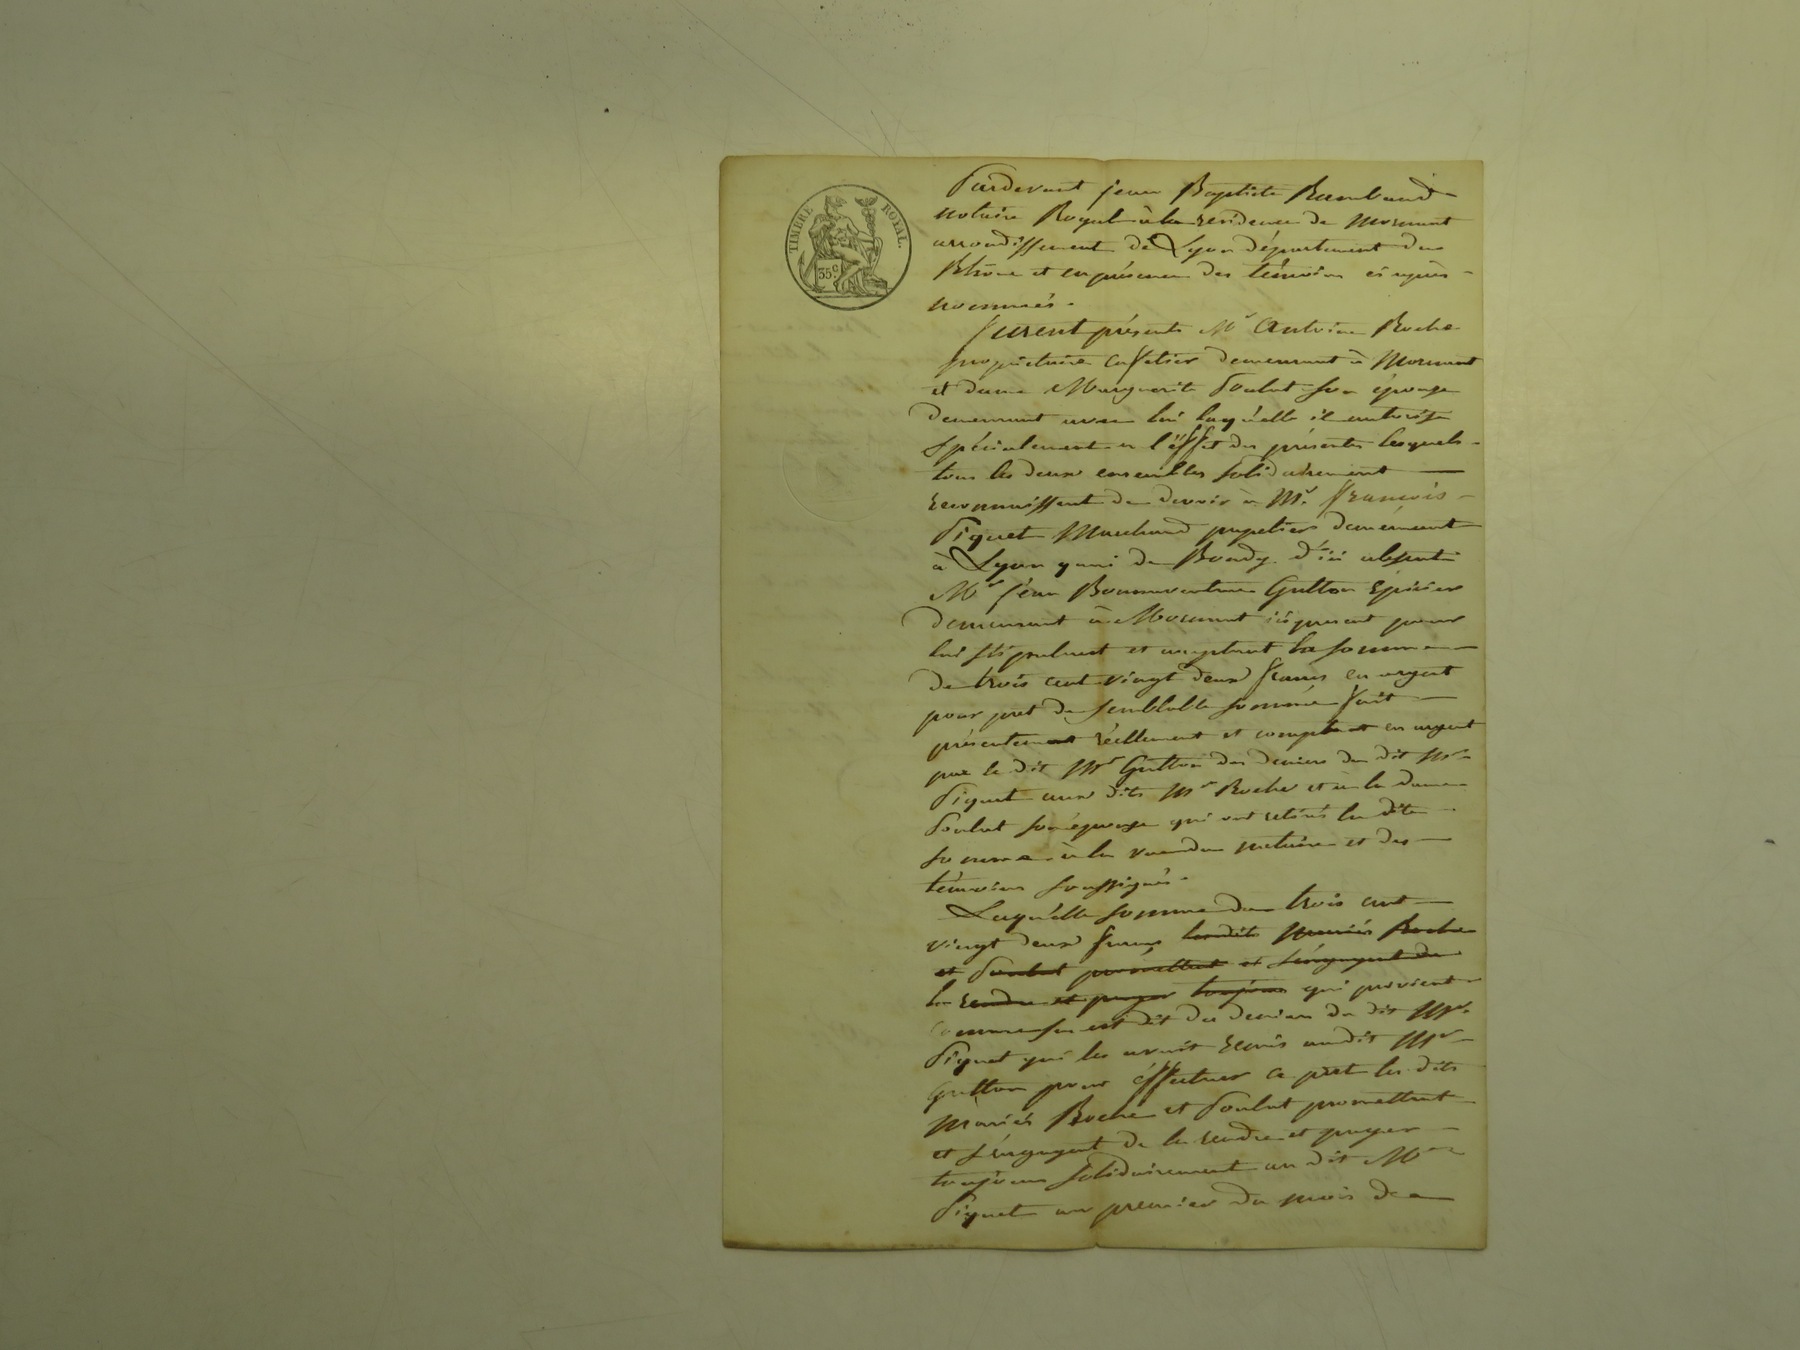 TIMBRE ROYAL.
35 c.
Pardevant jean Baptiste Rambaud
notaire Royal à la residence de Mornant
arrondissement de Lyon département du
Rhône et en présence des témoins ci après
nommés.
furent présents Mr Antoine Roche
propriétaire cafetier demeurant à Mornant
et dame Marguerite Poulat son épouse
demeurant avec lui laquelle il autorise
spécialement a l'éffet des présentes lesquels
tous les deux ensembles solidairement
reconnaissent de devoir à Mr. françois
Piquet Marchand papetier demeurant
à Lyon quai de Bondy d'ici absent
Mr jean Bonnaventure Gutton Epicier
demeurant à Mornant ici present pour
lui stipulant et acceptant la somme
de trois cent vingt deux francs en argent
pour pret de semblable somme fait
présentement réellement et comptant en argent
par le dit Mr Gutton des deniers du dit Mr
Piquet aux dits Mr Roche et à la dame
Poulat son épouse qui ont retirés la dite
somme à la vue du notaire et des
témoins soussignés.
Laquelle somme de trois cent
vingt deux francs lesdits Mariés Roche
et Poulat promettent et s'engagent de
la rendre et payer toujours qui provient
comme sus est dit des deniers du dit Mr.
Piquet qui les avait remis audit Mr
Gutton pour éffectuer ce prêt les dits
Mariés Roche et Poulat promettent
et s'engagent de la rendre et payer
toujours solidairement au dit Mr
Piquet au premier du mois de